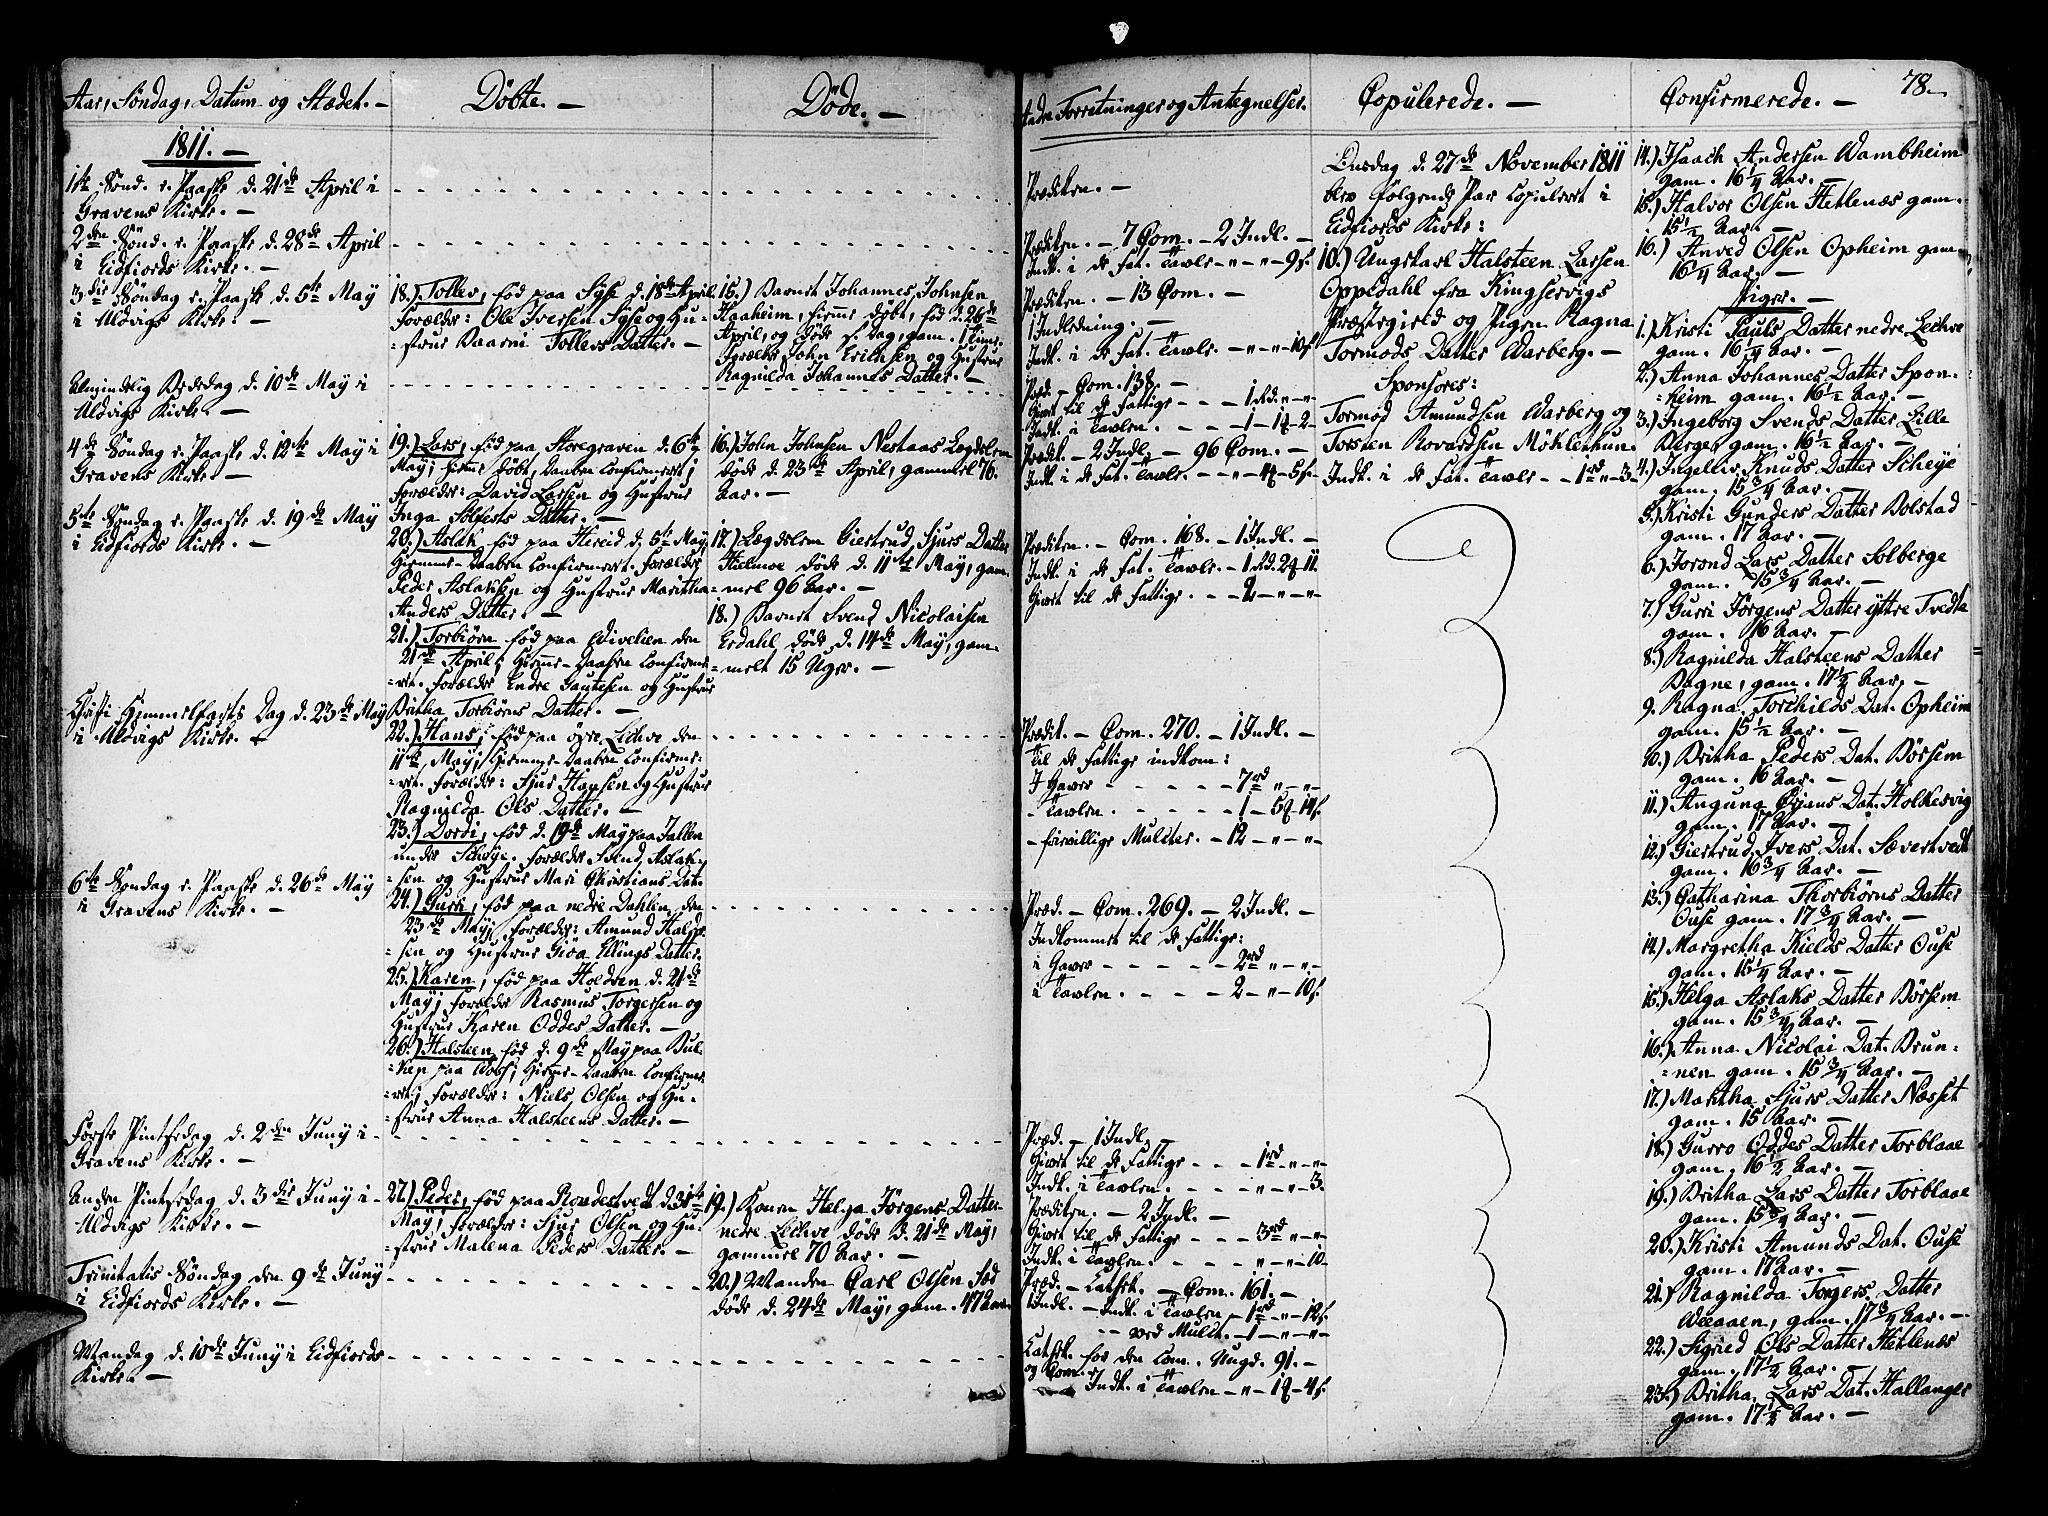 Aar, Søndag, Datum og Stædet. —
1811. —
1te Sønd. e. Paaske d. 21de April i
Gravens Kirke. —
2den Sønd. e. Paaske d. 28de April
i Eidfiords Kirke. —
3die Søndag e. Paaske d. 5te May
i Uldvigs Kirke. —
Almindelig Bededag d. 10de May i
Uldvigs Kirke. —
4de Søndag e. Paaske d. 12te May i
Gravens Kirke. —
5te Søndag e. Paaske d. 19de May
i Eidfiords Kirke. —
Christi Himmelfarts Dag d. 23de May
i Uldvigs Kirke. —
6te Søndag e. Paaske d. 26de May
i Gravens Kirke. —
Første Pintsedag d. 2den Juny i
Gravens Kirke. —
Anden Pintsedag d. 3die Juny i
Uldvigs Kirke. —
Trinitatis Søndag den 9de Juny
i Eidfiords Kirke. —
Mandag d. 10de Juny i Eidfiords
Kirke. —
Døbte. —
18.) Tollev, fød paa Syse d. 18de April.
Forældre: Ole Iversen Syse og Hu-
=strue Baarni Tollevs Datter. —
19.) Lars, fød paa Storegraven d. 6te
May, hiemme døbt, Daaben Confirmeret;
Forældre: David Larsen og Hustrue
Inga Sølfests Datter. —
20.) Aslak fød paa Hereid d. 5te May,
Hiemme-Daaben Confirmeret. Forældre
Peder Aslaksen og Hustrue Maritha
Anders Datter. —
21.) Torbiørn fød paa Wivelien den
21de April; Hiemme-Daaben Confirme-
=ret. Forældre Endre Gautesen og Hustrue
Britha Torbiørns Datter. —
22.) Hans, fød paa øvre Lechve den
11te May; Hiemme-Daaben Confirme-
=ret. Forældre: Sjur Hansen og Hustrue
Ragnilda Ols Datter. —
23.) Dordi, fød d. 19de May paa Hallen
under Scheye. Forældre Svend Aslak-
=sen og Hustrue Mari Christians Dat.
24.) Guri, fød paa nedre Dahlen den
23de May; Forældre: Amund Halvor-
=sen og Hustrue Giøa Ellings Datter.
25.) Karen, fød paa Holdren d. 21de
May; Forældre Rasmus Torgersen og
Hustrue Karen Oddes Datter. —
26.) Halsteen, fød d. 9de May paa
Hiemme-Daaben Confirme-
=ret; Forældre: Niels Olsen og Hu-
=strue Anna Halsteens Datter. —
27.) Peder, fød paa Rondestvedt d. 31te
May, Forældre: Sjur Olsen og Hu-
=strue Malena Peders Datter. —
Døde. —
15.) Barnet Johannes Johnsen
Haaheim, hieme døbt, fød d. 26de
April, og døde s. Dag, gam. 1 Time.
Forældre John Erichsen og Hustrue
Ragnilda Johannes Datter. —
16.) John Johnsen Nestaas Lægdslem
døde d. 23de April, gammel 76
Aar. —
17.) Lægdslem Giertrud Sjurs Datter
Hielmoe døde d. 11te May, gam-
=mel 96 Aar. —
18.) Barnet Svend Nicolaisen
Erdahl, døde d. 14de May, gam-
=melt 15 Uger. —
19.) Konen Helga Jørgens Datter
nedre Lechve døde d. 21de May,
gammel 70 Aar. —
20.) Manden Carl Olsen Sæd
døde d. 24de May, gam. 47 Aar.
Andre Forretninger og Antegnelser.
Prædiken. —
Prædiken. — 7 Com. — 2 Indl. —
Indk. i de Fat. Tavle — „ — „ — 9 s.
Prædiken. — 13 Com. —
1 Indledning. —
Indk. i de Fat. Tavle. — „ — „ — 10 s.
Præd. — Com. 138. —
Givet til de Fattige — — 1 Rd. „ — „
Indk. i Tavlen. — — 1 — 1 — 2 —
Prædik. — 2 Indl. — 96 Com. —
Indk. i de Fat. Tavle. — „ — 4 — 5 s.
Prædiken. — Com. 168. — 1 Indl. —
Indk. i de Fat. Tavle. — 1 Rd. 2 11.
Givet til de Fattige. — — 2 — „ — „
Prædik. — Com. 270. — 1 Indl. —
Til de Fattige indkom:
I Gaver — — — — 7 rd „ — „
- Tavlen. — — — — 1 — 5 — 14 s.
- frivillige Mulcter. — 12 — „ — „
Præd. — Com. 269. — 2 Indl. —
Indkommet til de Fattige:
i Gaver — — — — 2 rd „ — „
i Tavlen. — — — — 2 — „ — 10 s.
Præd. — 1 Indl. —
Givet til de Fattige — — — 1 rd „ — „
Indk. i Tavlen. — — — „ — „ — 3.
Prædiken. — 2 Indl. —
Givet til de Fattige — — — 3 rd „ — „
Indk. i Tavlen. — — — „ — „ — 10
Præd. — Catech. — Com. 161. —
1 Indl. — Indk. i Tavlen — 1 rd „ — 12 s.
— ved Mulct. — 1 — „ — „
Catech. for den Com. Ungd. 91. —
og Com.
Indk. i Tavlen — „ — 1 — 4 s.
Copulerede. —
Onsdag d. 27de November 1811
blev følgende Par Copuleret i
Eidfiords Kirke:
10.) Ungekarl Halsteen Larsen
Oppedahl fra Kingservigs
Præstegield og Pigen Ragna
Tormods Datter Warberg. —
Sponsores:
Tormod Amundsen Warberg og
Torsten Rovardsen Möhlerhun.
Indk. i de Fat. Tavle — — 1 rd „ — 3 —
78. —
Confirmerede. —
14.) Isaach Andersen Wambheim
gam. 16 1/4 Aar. —
15.) Halvor Olsen Hetlenæs gam.
15 1/2 Aar. —
16.) Anved Olsen Opheim gam.
16 1/4 Aar. —
Piger. —
1.) Kristi Pauls Datter nedre Lechve
gam. 16 1/4 Aar. —
2.) Anna Johannes Datter Spon-
=heim gam. 16 1/2 Aar. —
3.) Ingeborg Svends Datter Lille
Berge, gam. 16 1/2 Aar. —
4.) Ingelev Knuds Datter Scheye
gam. 15 3/4 Aar. —
5.) Kristi Gunders Datter Bolstad
gam. 17 Aar. —
6.) Jorond Lars Datter Solberge
gam. 15 3/4 Aar. —
7.) Guri Jörgens Datter yttre Tvedta
gam. 16 Aar. —
8.) Ragnilda Halsteens Datter
Bagne, gam. 17 1/2 Aar. —
9. Ragna Torchilds Dat. Opheim
gam. 15 1/2 Aar. —
10.) Britha Peders Dat. Börsem
gam. 16 Aar. —
11.) Anguna Ørjans Dat. Holkesvig
gam. 17 Aar. —
12.) Giertrud Ivers Dat. Sævertvedt
gam. 16 3/4 Aar. —
13.) Catharina Thorbiörns Datter
Ouse gam. 17 3/4 Aar. —
14.) Margretha Kields Datter Ouse
gam. 15 1/4 Aar. —
15.) Helga Aslaks Datter Börsem
gam. 15 3/4 Aar. —
16.) Anna Nicolai Dat. Brun-
=nen gam. 15 3/4 Aar. —
17.) Maritha Sjurs Datter Næsset
gam. 15 Aar. —
18.) Gurro Oddes Datter Torblaae
gam. 16 1/2 Aar. —
19.) Britha Lars Datter Torblaae
gam. 15 3/4 Aar. —
20.) Kristi Amunds Dat. Ouse
gam. 17 Aar. —
21.) Ragnilda Torgers Datter
gam. 17 3/4 Aar. —
22.) Sigried Ols Datter Hetlenæs
gam. 17 1/2 Aar. —
23.) Britha Lars Dat. Hallanger
gam. 17 1/2 Aar. —